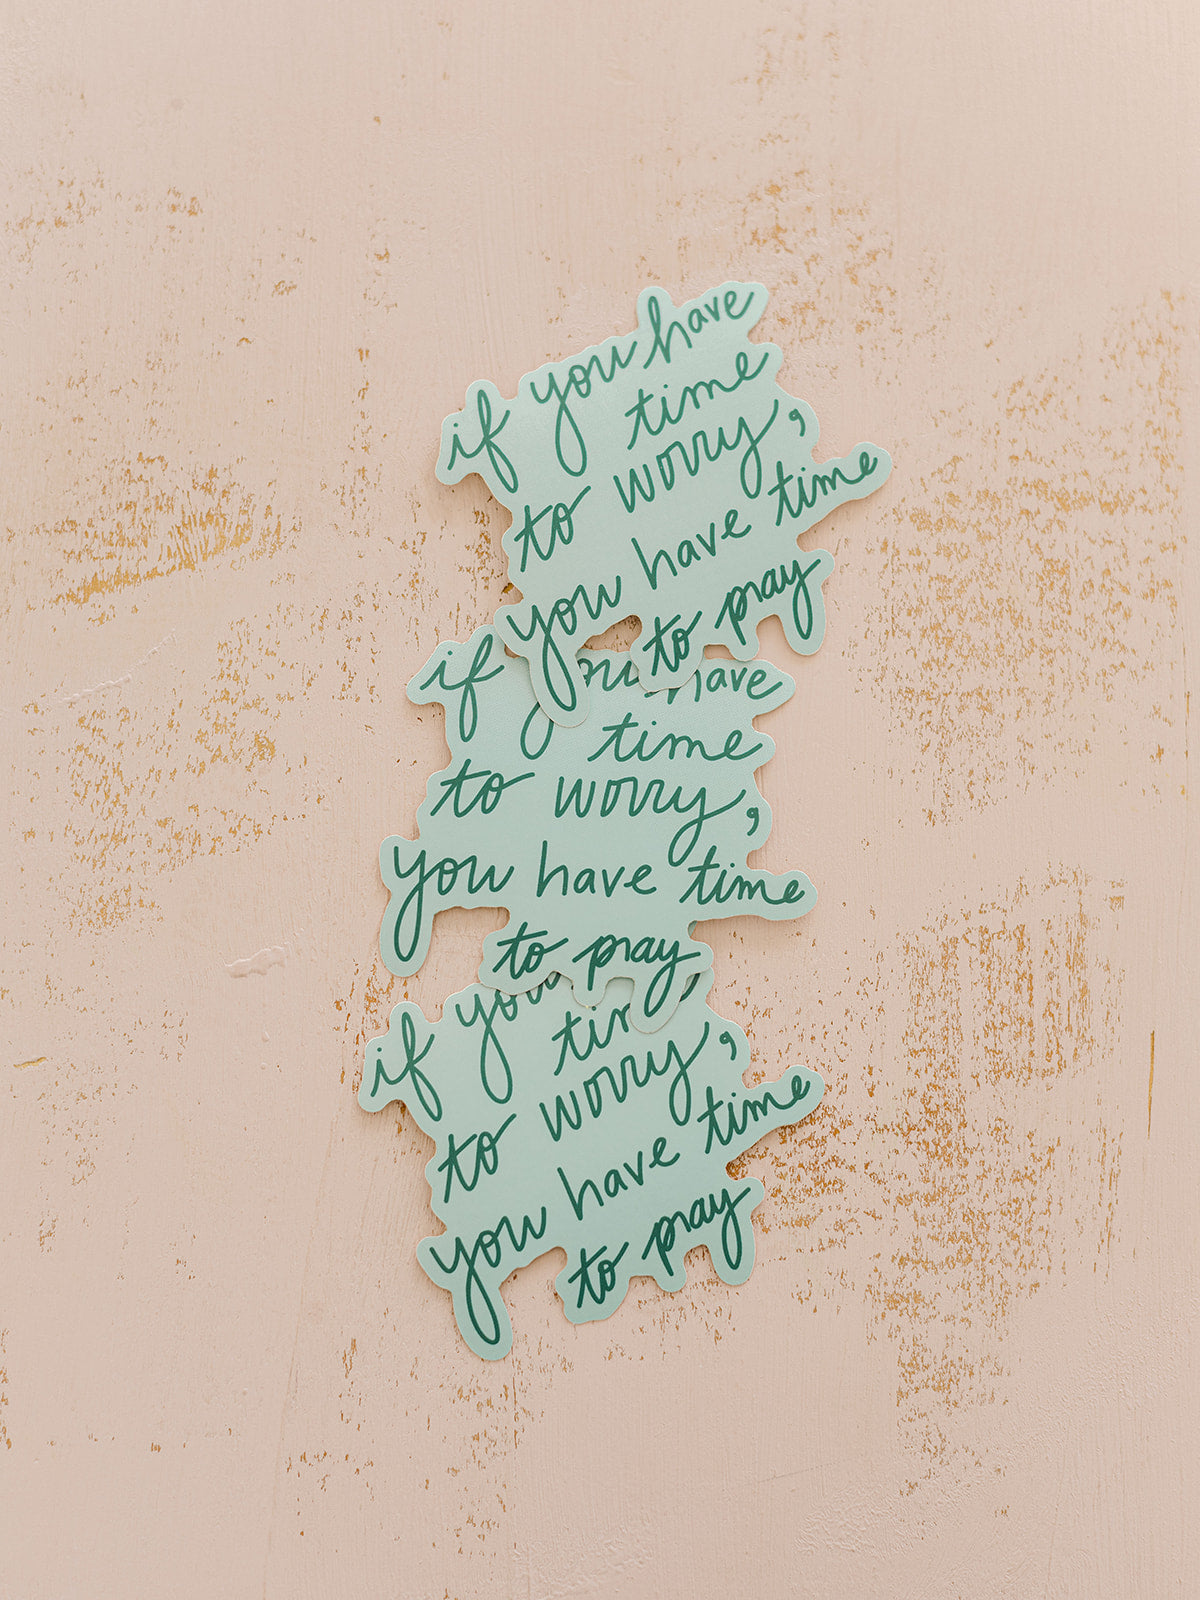 if you have
time
to worry,
you have time
to pray
if you have
time
to worry,
you have time
to pray
if you
time
to worry,
you have time
to pray